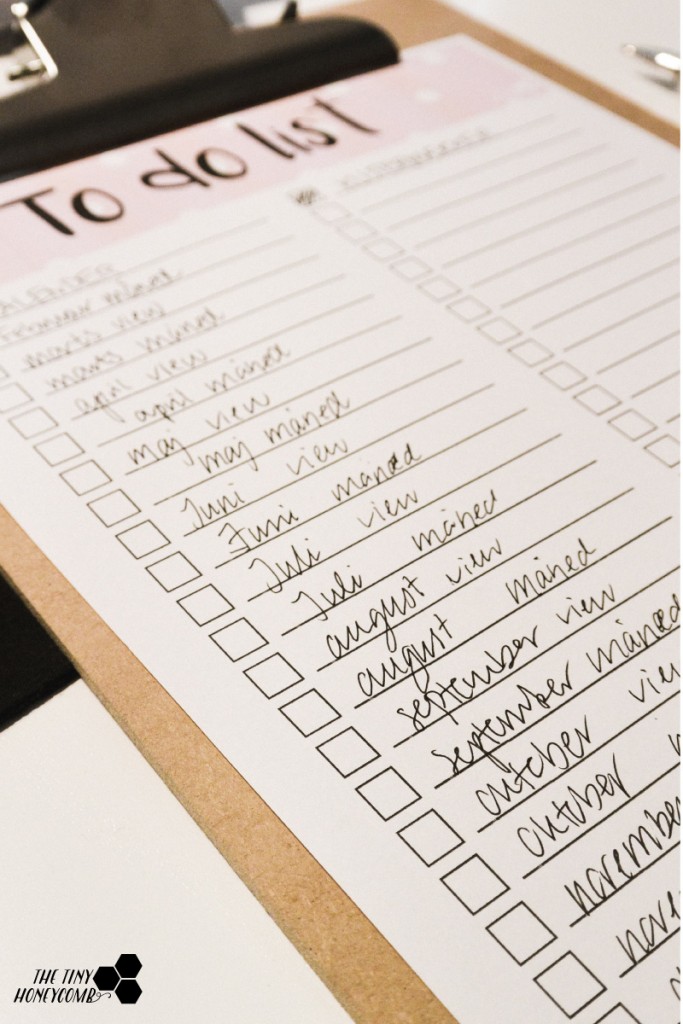 To do list
februar måned
marts view
marts måned
april view
april måned
maj view
maj måned
Juni view
Juni måned
Juli view
Juli måned
august view
august måned
september view
september måned
october
october
november
THE TINY
HONEYCOMB